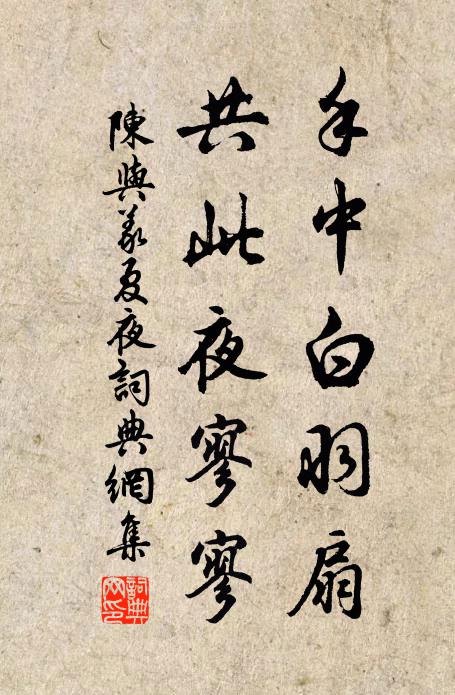 手中白羽扇
共此夜寥寥
陳與義夏夜詞典網集
詞典網印